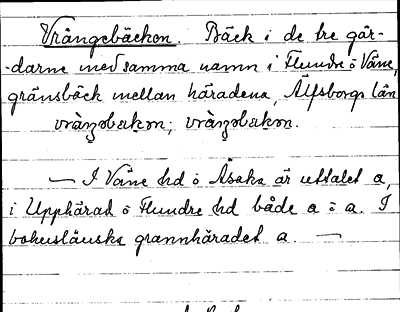 Vrångebäcken. Bäck i de tre går-
-darne med samma namn i Flundre o Väne,
gränsbäck mellan häradena, Älfsborgs län

— I Väne hd o Åsaka är uttalet a,
i Upphärad o Flundre hd både a o a. I
bohuslänska grannhäradet a. —